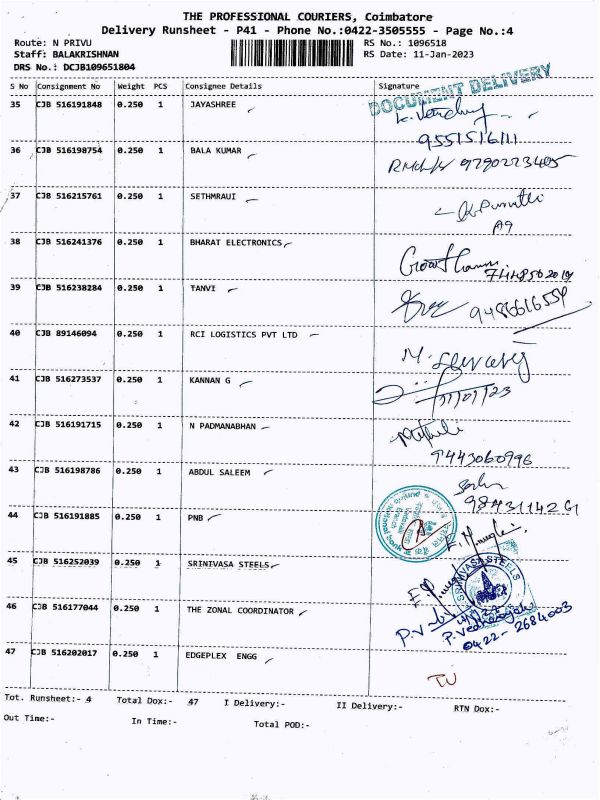 THE PROFESSIONAL COURIERS, Coimbatore
Delivery Runsheet - P41 - Phone No.:0422-3505555 - Page No.:4
Route: N PRIVU RS No.: 1096518
Staff: BALAKRISHNAN RS Date: 11-Jan-2023
DRS No.: DCJB109651804
DOCUMENT DELIVERY
S No Consignment No Weight PCS Consignee Details Signature
35 CJB 516191848 0.250 1 JAYASHREE
9551516111
36 CJB 516198754 0.250 1 BALA KUMAR 9790223405
37 CJB 516215761 0.250 1 SETHMRAUI
A9
38 CJB 516241376 0.250 1 BHARAT ELECTRONICS
39 CJB 516238284 0.250 1 TANVI 9486616554
40 CJB 89146094 0.250 1 RCI LOGISTICS PVT LTD
41 CJB 516273537 0.250 1 KANNAN G 11/01/23
42 CJB 516191715 0.250 1 N PADMANABHAN
9443060996
43 CJB 516198786 0.250 1 ABDUL SALEEM
44 CJB 516191885 0.250 1 PNB
45 CJB 516252039 0.250 1 SRINIVASA STEELS SRINIVASA STEELS
46 CJB 516177044 0.250 1 THE ZONAL COORDINATOR
0422-2684003
47 CJB 516202017 0.250 1 EDGEPLEX ENGG
Tot. Runsheet:- 4 Total Dox:- 47 I Delivery:- II Delivery:- RTN Dox:-
Out Time:- In Time:- Total POD:-